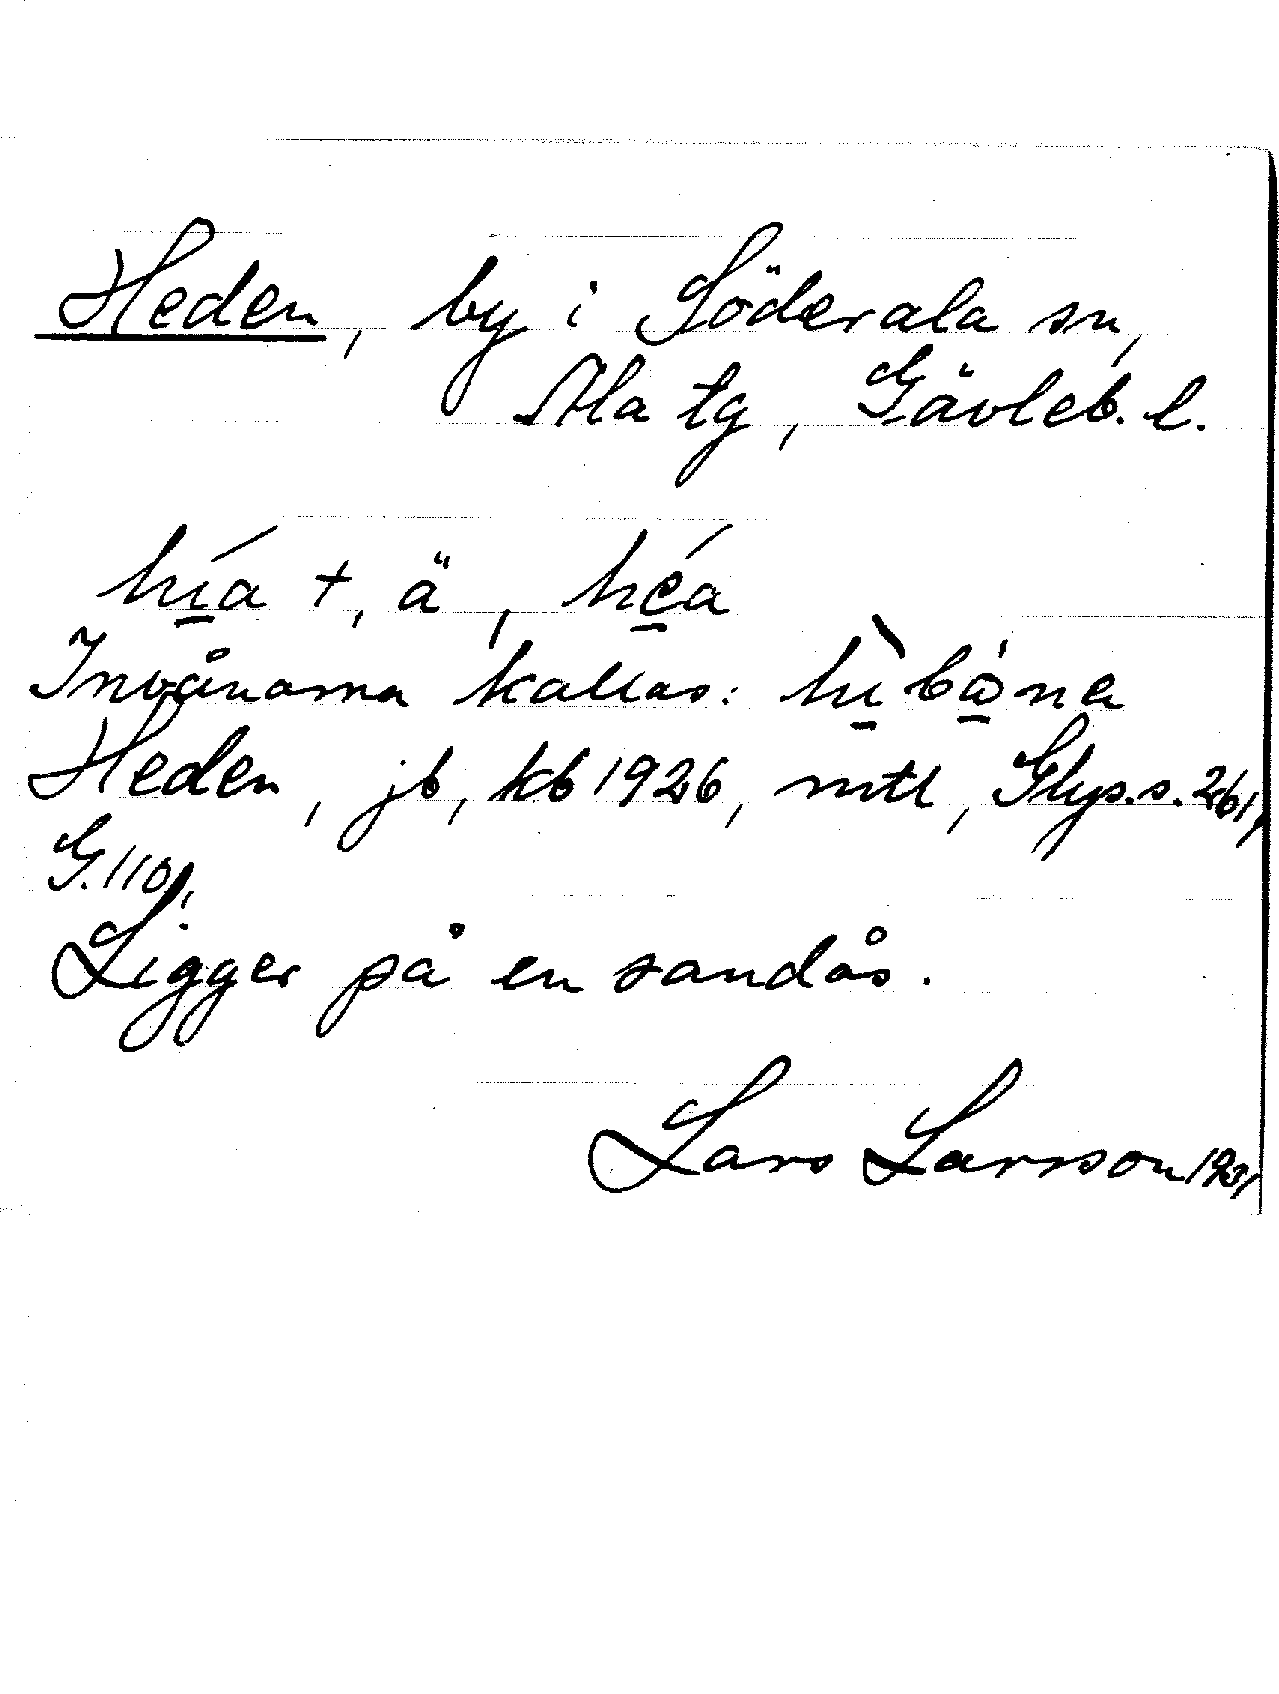 Heden, by i Söderala sn,
Ala tg, Gävleb. l.
hí̱a +, ä, hé̱a
Invånarna kallas: hì̱bǻ̱na
Heden, jb, kb 1926, mtl, Glys.s. 261,
G.110,
Ligger på en sandås.
Lars Larsson 1931